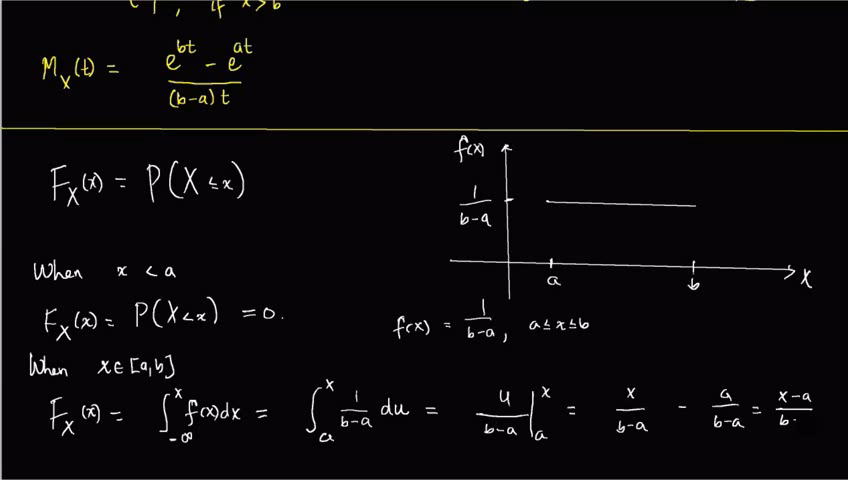 , if x > b
M_X(t) = (e^{bt} - e^{at}) / ((b-a)t)
F_X(x) = P(X ≤ x)
f(x)
1/(b-a)
a b X
When x < a
F_X(x) = P(X < x) = 0.
f(x) = 1/(b-a), a ≤ x ≤ b
When x ∈ [a,b]
F_X(x) = ∫_{-∞}^{x} f(x)dx = ∫_{a}^{x} 1/(b-a) du = u/(b-a) |_{a}^{x} = x/(b-a) - a/(b-a) = (x-a)/(b-